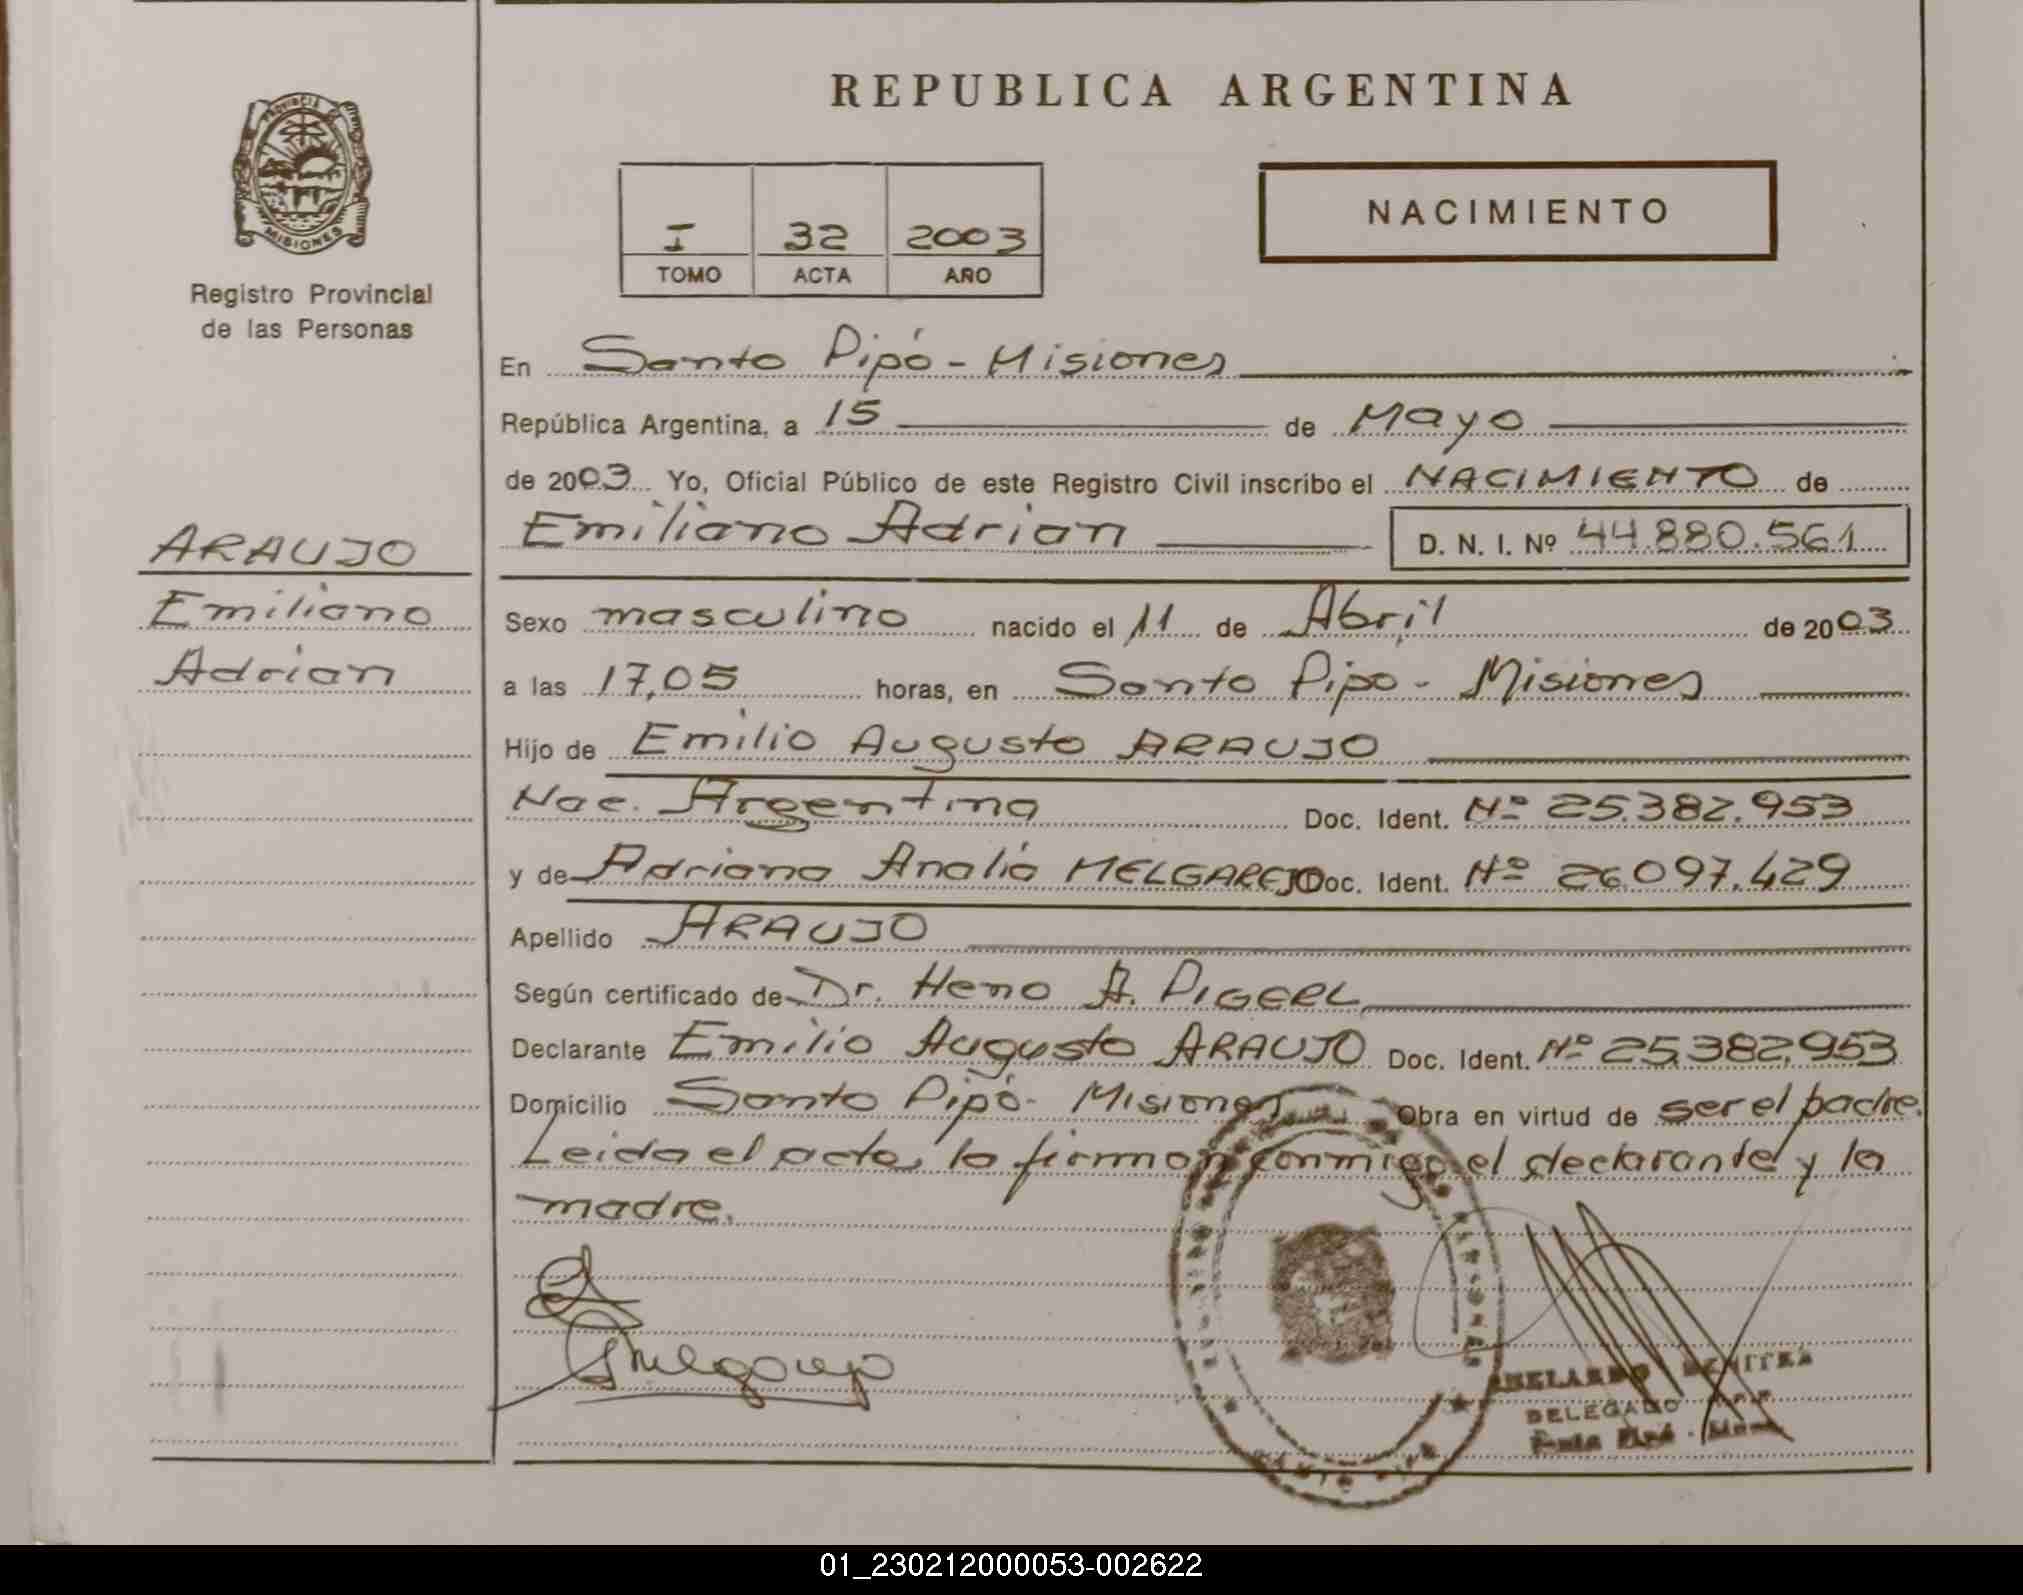 REPUBLICA ARGENTINA
PROVINCIA DE
MISIONES
Registro Provincial
de las Personas
I 32 2003
TOMO ACTA AÑO
NACIMIENTO
ARAUJO
Emiliano
Adrian
En Santo Pipó - Misiones
República Argentina, a 15 de Mayo
de 2003 Yo, Oficial Público de este Registro Civil inscribo el NACIMIENTO de
Emiliano Adrian D. N. I. Nº 44.880.561
Sexo masculino nacido el 11 de Abril de 2003
a las 17,05 horas, en Santo Pipo - Misiones
Hijo de Emilio Augusto ARAUJO
Nac. Argentina Doc. Ident. Nº 25.382.953
y de Adriana Analia MELGAREJO Doc. Ident. Nº 26.097.429
Apellido ARAUJO
Según certificado de Dr. Heno A. PIGERL
Declarante Emilio Augusto ARAUJO Doc. Ident. Nº 25.382.953
Domicilio Santo Pipó - Misiones Obra en virtud de ser el padre.
Leida el acta, la firman conmigo el declarante y la
madre.
ABELARDO BENITEZ
DELEGADO
01_230212000053-002622